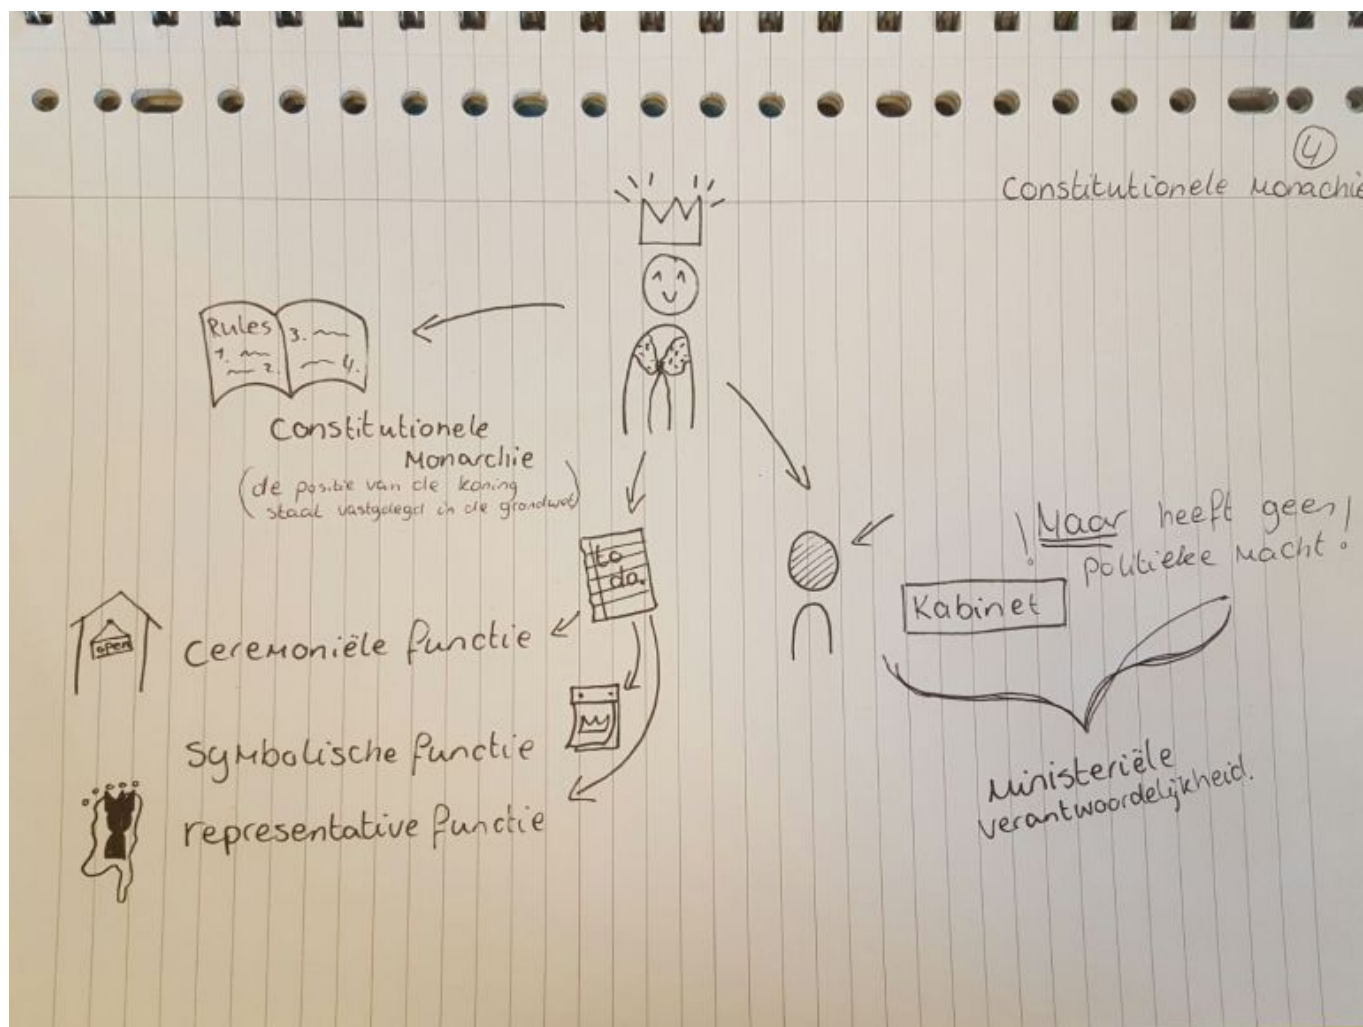 4
Constitutionele Monachie
Rules
1.
2.
3.
4.
Constitutionele
Monarchie
(de positie van de koning
staat vastgelegd in de grondwet)
to
do.
open
Ceremoniële functie
Symbolische functie
representative functie
! Maar heeft geen
politieke macht!
Kabinet
Ministeriële
verantwoordelijkheid.